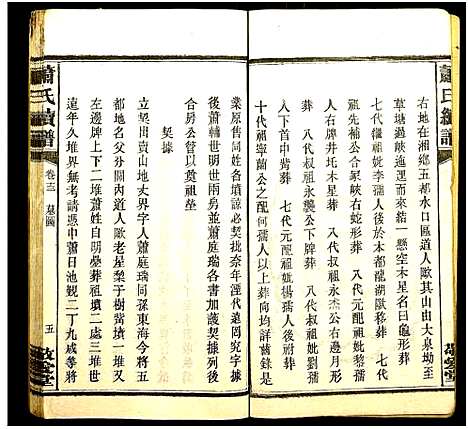 蕭氏續譜
右地在湘鄉五都水口區道人歐其山由大泉坳至
草塘過峽施行一里許結 懸空木星名曰龜形葬
七代繼祖妣李孺人後葬本都龍湖歐移葬 七代
祖先輔公合家峽右蛇形葬 八代元配祖妣黎孺
人右牌井坵木星葬 八代叔祖永杰公右邊月形
葬 八代叔祖永濺公下牌葬 八代叔祖妣劉孺
人下首中背葬 七代元配祖妣楊孺人後祔葬
十代祖寧蘭公之配何孺人以上葬向均詳齒錄是
業原售同姓各墳諒必有契批奈年湮代遠罔究字據
後蕭輔世明世勿兩房並蕭庭瑞各書加議契據
合房公管以奠祖塋
契據
立契出賣山地丈界字人蕭庭瑞同孫東海今將五
都地名父分關內道人歐老屋檠子樹窩墳一堆又
左邊牌上下二堆蕭姓自明纍葬祖墳二處三堆世
遠年久堆界無考請憑中蕭日池觀二丁九咸孝將
蕭氏續譜
卷十三 墓圖
五
敬愛堂